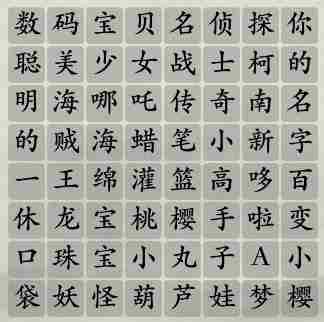 数码宝贝名侦探你
聪美少女战士柯的
明海哪吒传奇南名
的贼海蜡笔小新字
一王绵灌篮高哆百
休龙宝桃樱手啦变
口珠宝小丸子A小
袋妖怪葫芦娃梦樱